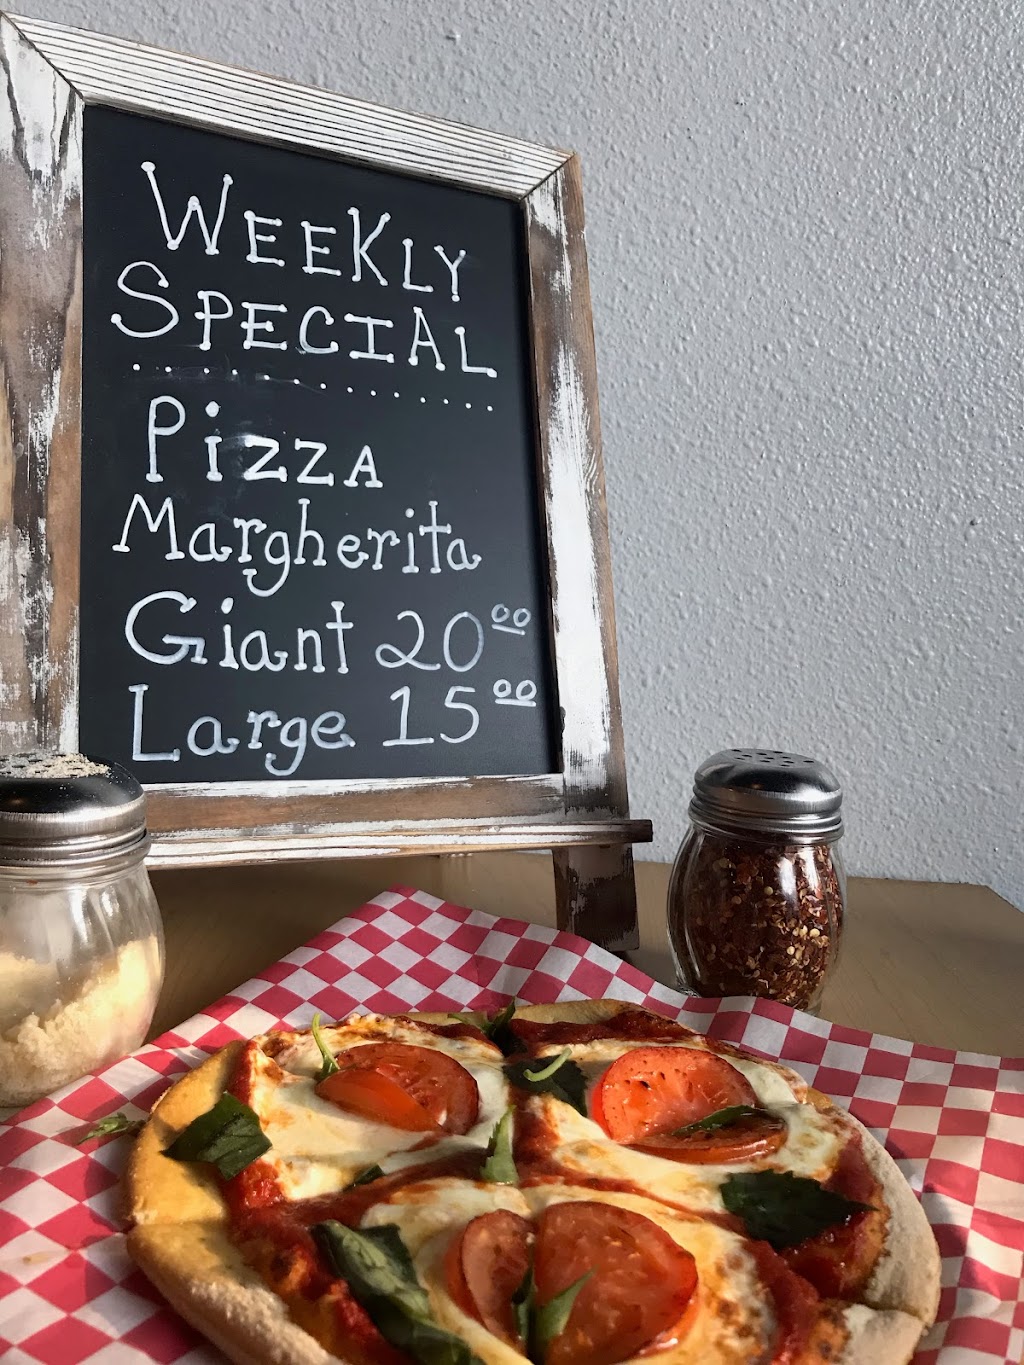 WEEKLY
SPECIAL
PIZZA
Margherita
Giant 20 00
Large 15 00